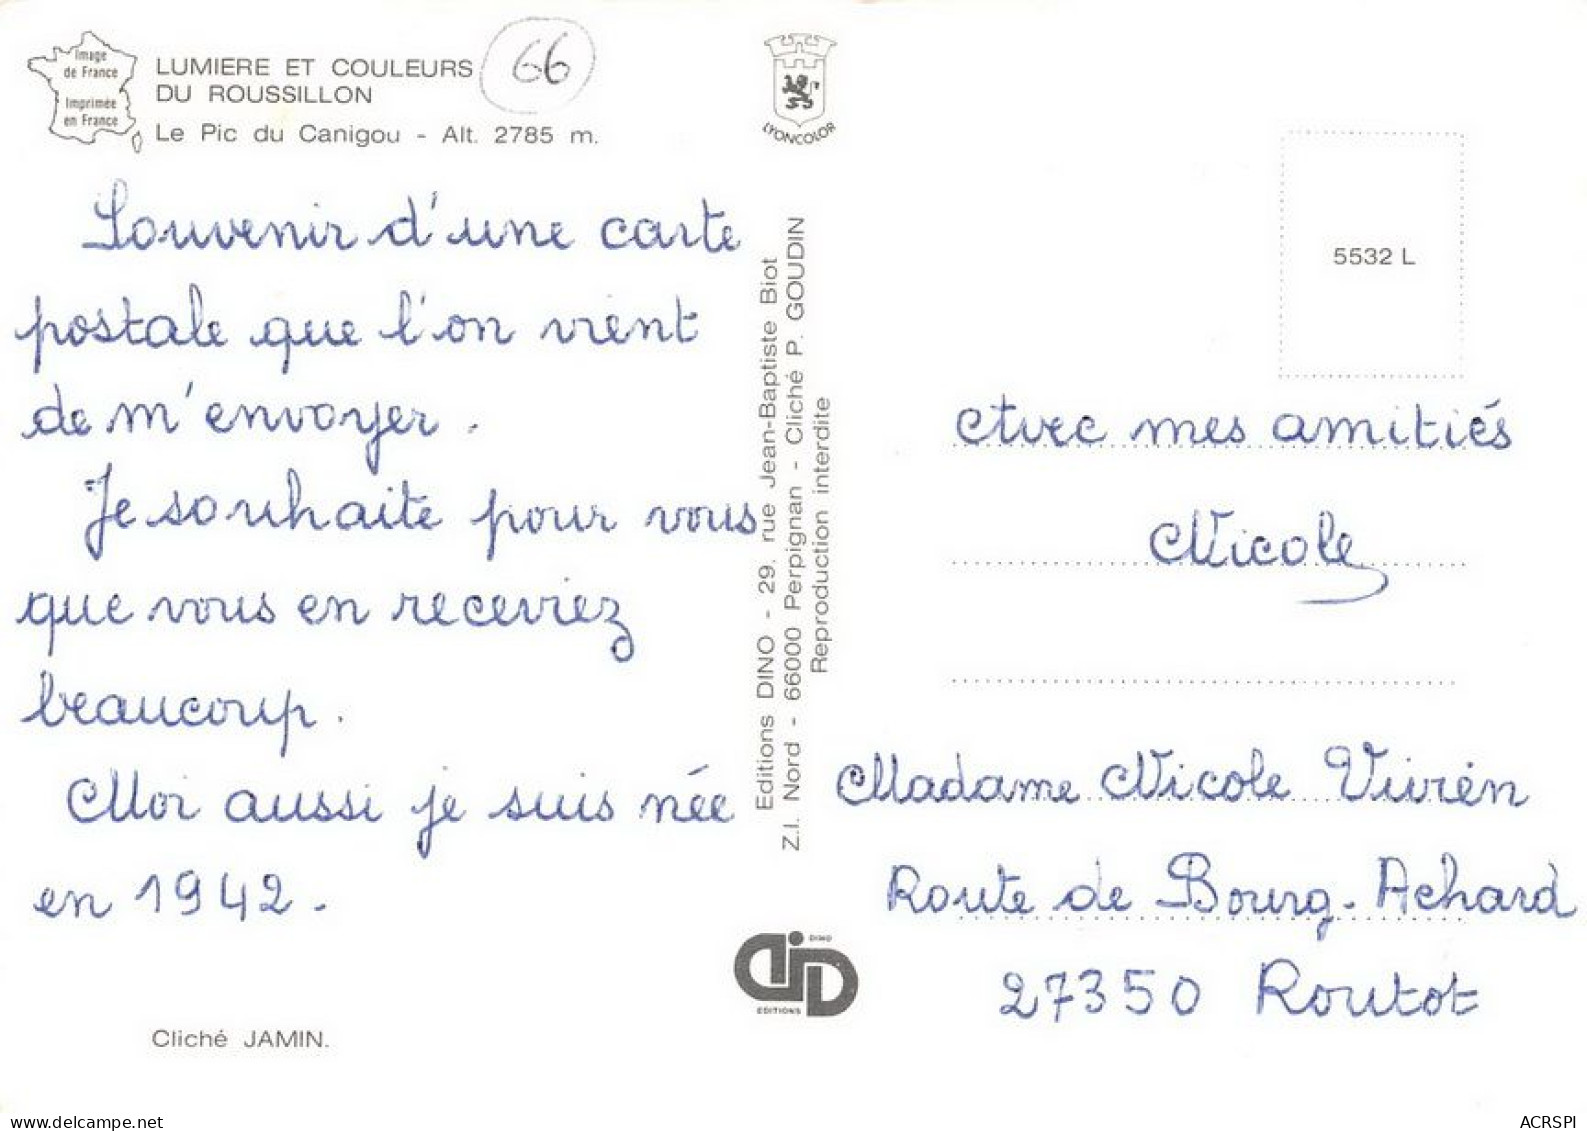 Image
de France
Imprimée
en France
LUMIERE ET COULEURS
DU ROUSSILLON
Le Pic du Canigou - Alt. 2785 m.
66
LYONCOLOR
5532 L
Souvenir d'une carte
postale que l'on vient
de m'envoyer.
Je souhaite pour vous
que vous en receviez
beaucoup.
Moi aussi je suis née
en 1942.
Cliché JAMIN.
Editions DINO - 29, rue Jean-Baptiste Biot
Z.I. Nord - 66000 Perpignan - Cliché P. GOUDIN
Reproduction interdite
DINO
EDITIONS
Avec mes amitiés
Nicole
Madame Nicole Vivién
Route de Bourg-Achard
27350 Routot
ACRSPI